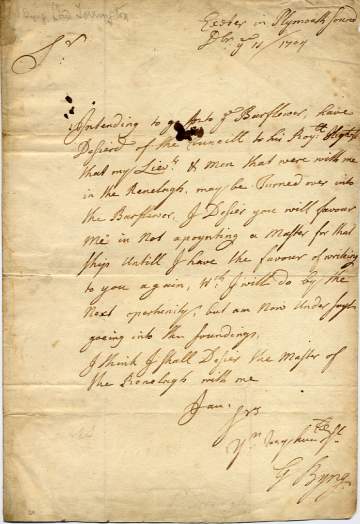 Exeter in Plymouth sound
Dbr ye 11 / 1704
Sr
Intending to go into ye Barflower, have
Desierd of the Councill to his Roy:ll
that my Lieuts & men that were with me
in the Ranelagh, may be Turned over into
the Barflower. I Desier you will favour
me in Not apoynting a Master for that
ship Untill I have the favour of writing
to you again, Wch I will do by the
Next opertunity, but am Now Under
goeing into the soundings.
I think I shall Desier the Master of
the Ranelagh with me
I am
Sr
Yr
G Byng